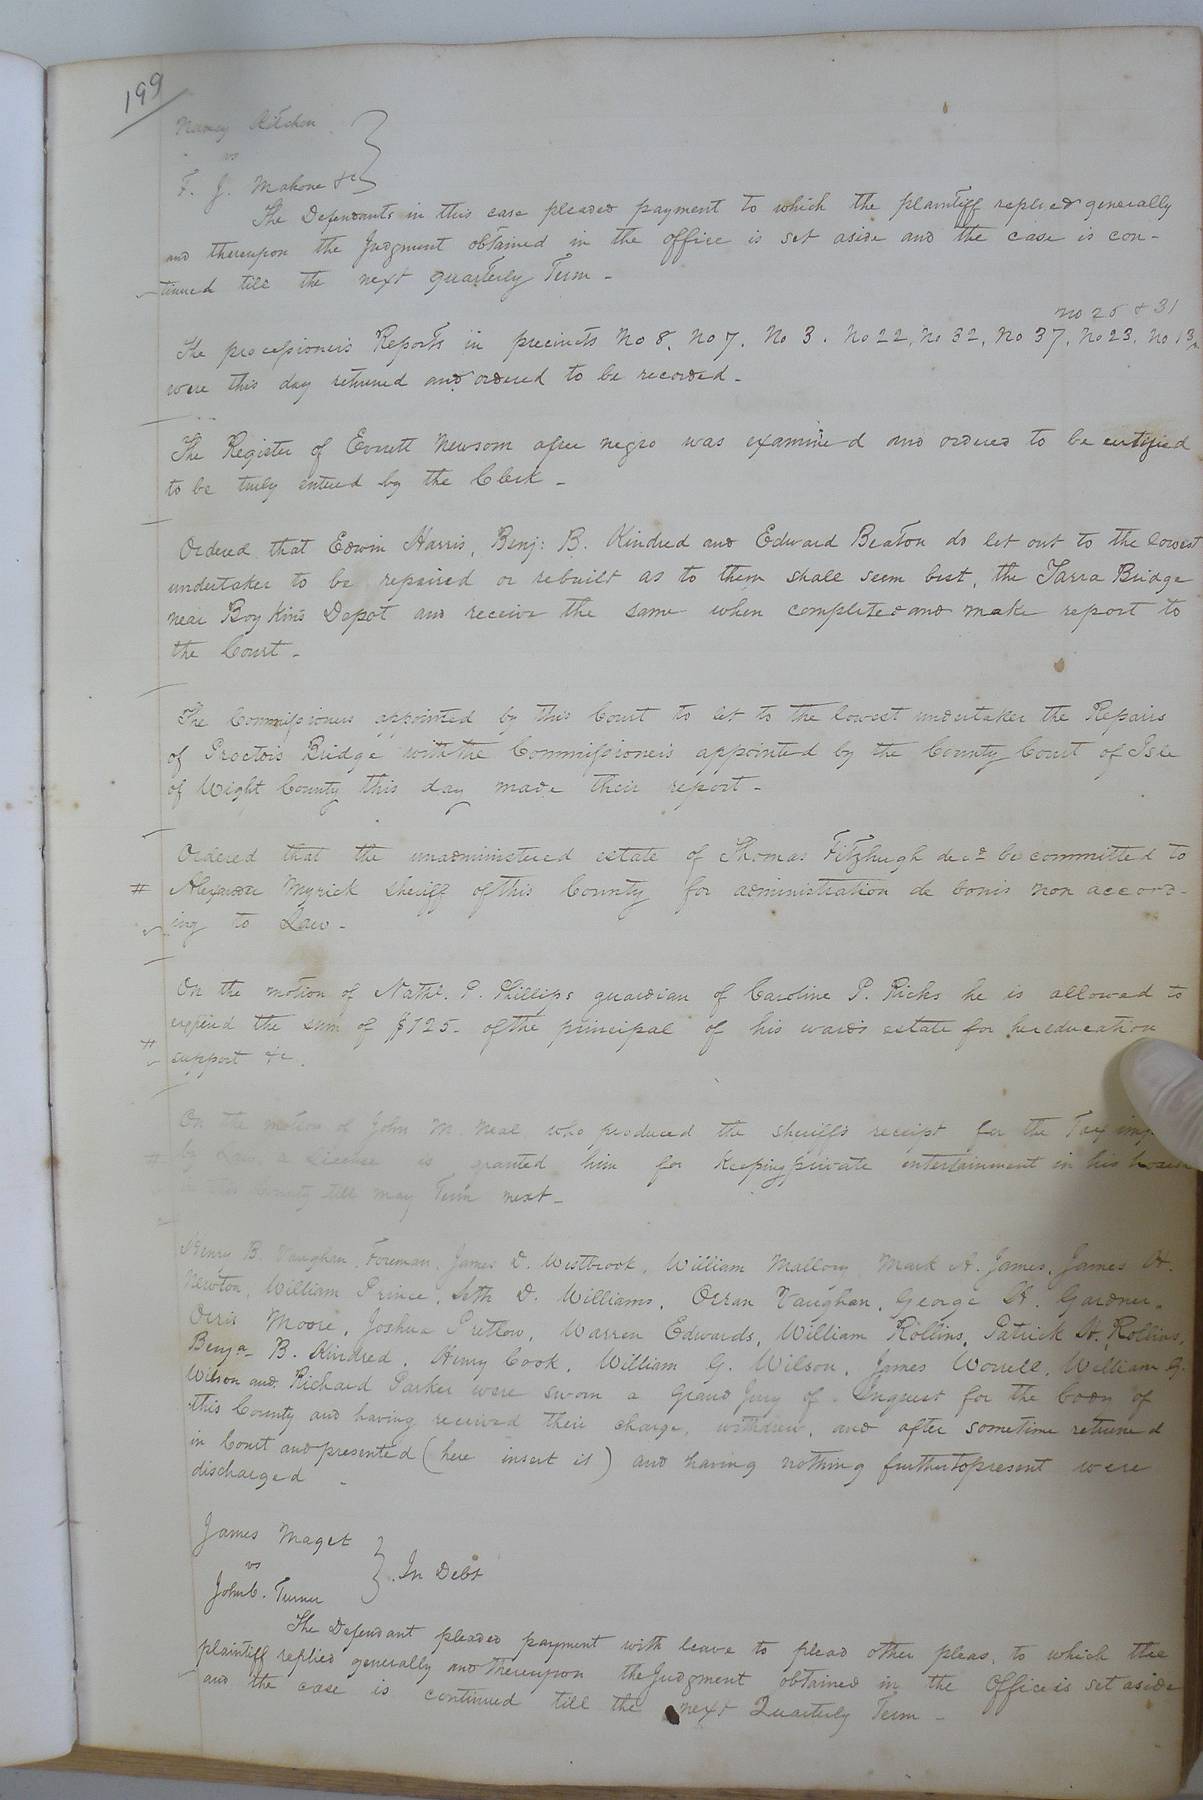 199
Nancy Kitchen
vs
F. J. Mahone &c
The Defendants in this case pleaded payment to which the plaintiff replied generally
and thereupon the Judgment obtained in the office is set aside and the case is con-
tinued till the next quarterly Term -
no 25 & 31
The processioner's Reports in precincts No 8, No 7, No 3. No 22, No 32, No 37, No 23, No 13
were this day returned and ordered to be recorded -
The Register of Everett Newsom a free negro was examined and ordered to be certified
to be truly entered by the Clerk -
Ordered that Edwin Harris, Benj: B. Kindred and Edward Beaton do let out to the lowest
undertaker to be repaired or rebuilt as to them shall seem best, the Tarra Bridge
near Boykins Depot and receive the same when completed and make report to
the Court -
The Commissioners appointed by this Court to let to the lowest undertaker the Repairs
of Proctors Bridge with the Commissioners appointed by the County Court of Isle
of Wight County this day made their report -
Ordered that the unadministered estate of Thomas Fitzhugh decd be committed to
# Alexander Myrick sheriff of this County for administration de bonis non accord-
ing to Law -
On the motion of Nathl. P. Phillips guardian of Caroline P. Ricks he is allowed to
expend the sum of $125 - of the principal of his wards estate for her education
# support &c.
On the motion of John M. Neal who produced the sheriffs receipt for the Tax
# by Law, a License is granted him for keeping private entertainment in his house
in this County till may Term next -
Henry B. Vaughan, Foreman, James D. Westbrook, William Mallory, Mark A. James, James H.
Newton, William Prince, Seth D. Williams, Orran Vaughan, George H. Gardner,
Orris Moore, Joshua Pretlow, Warren Edwards, William Rollins, Patrick H. Rollins,
Benja B. Kindred, Henry Cook, William G. Wilson, James Worrell, William G.
Wilson and Richard Parker were sworn a Grand Jury of Inquest for the body of
this County and having received their charge, withdrew, and after sometime returned
in Court and presented (here insert it) and having nothing further to present were
discharged -
James Maget
vs
In Debt
John C. Turner
The Defendant pleaded payment with leave to plead other pleas, to which the
plaintiff replied generally and thereupon the Judgment obtained in the Office is set aside
and the case is continued till the next Quarterly Term -